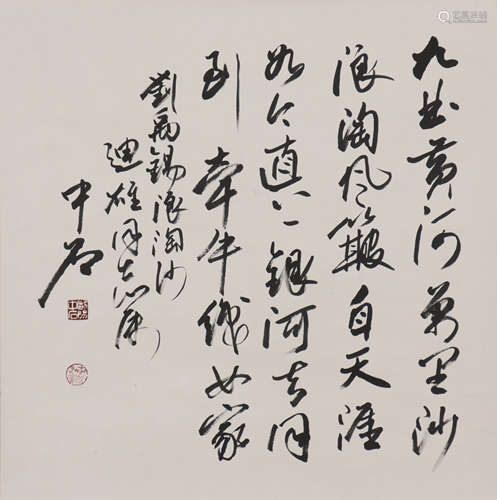 九曲黄河万里沙
浪淘风簸自天涯
如今直上银河去同
到牵牛织女家
劉禹锡浪淘沙
迪雄同志属
中石